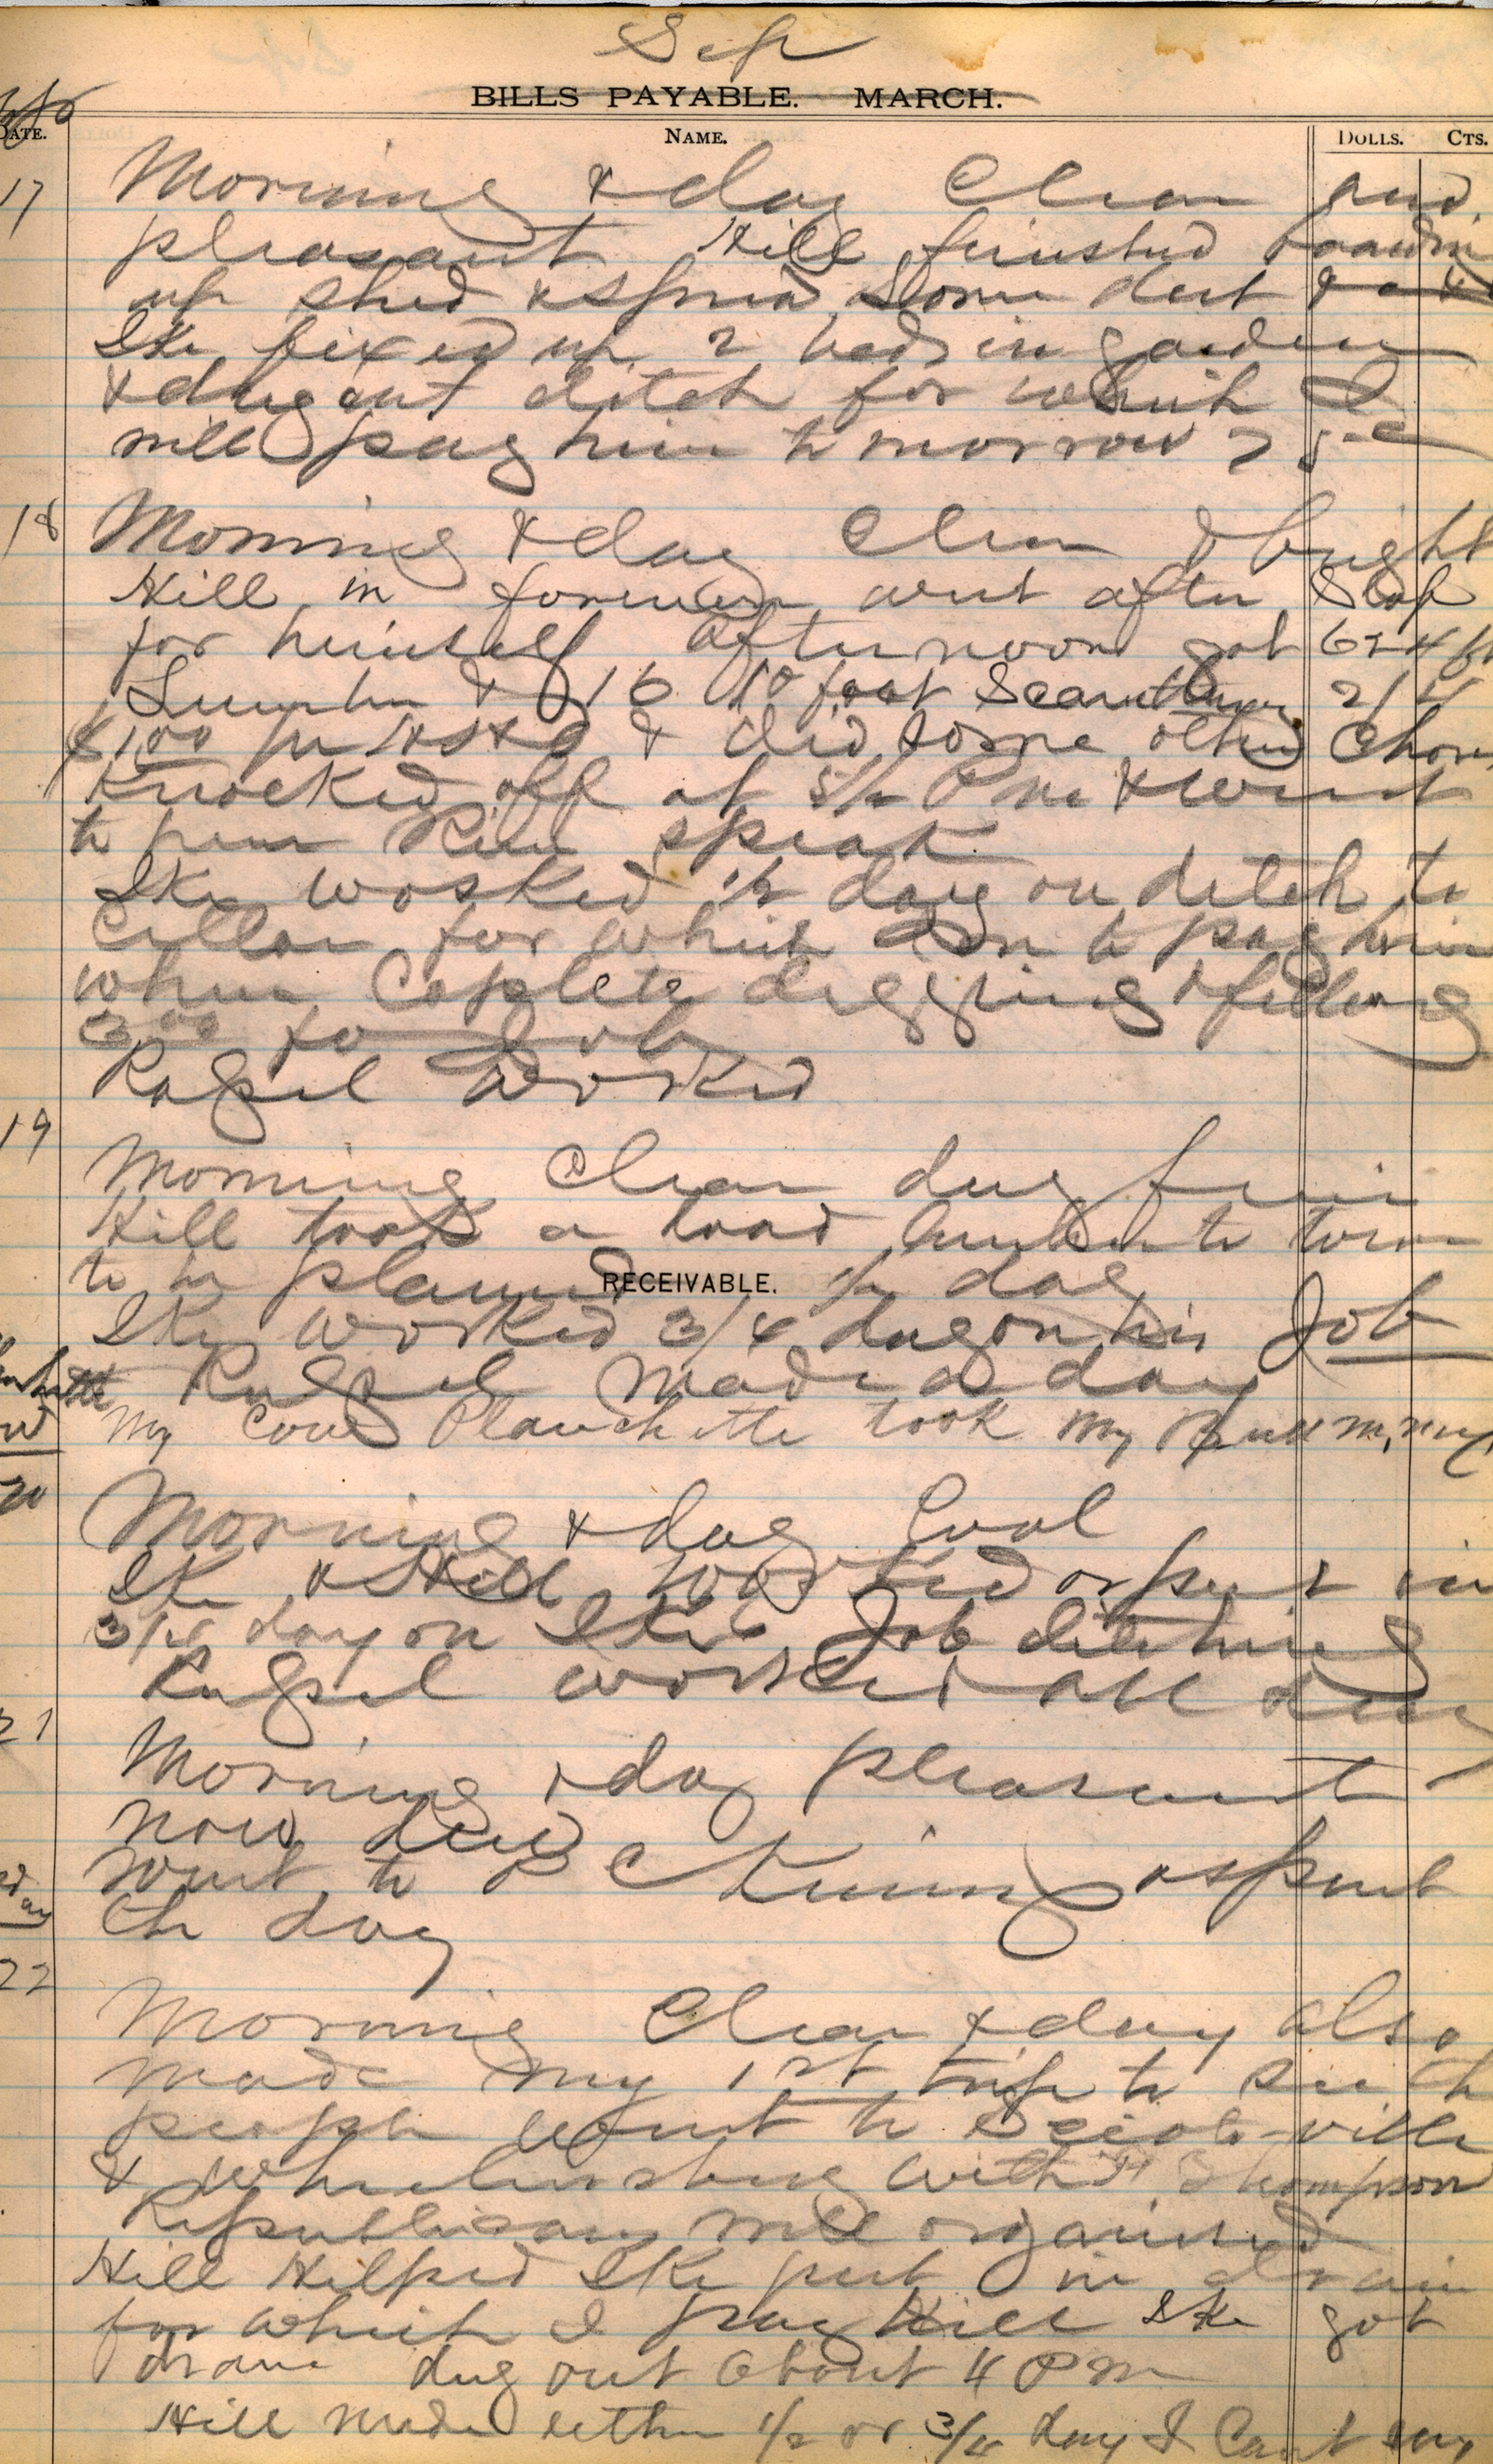 Sep
BILLS PAYABLE. MARCH.
DATE. NAME. DOLLS. CTS.
17 Morning & day Clear and
pleasant Hill finished boarding
up shed & spread some dirt
Ike fixed up 2 beds in garden
& dug out ditch for which I
will pay him to morrow 75c
18 Morning & day Clear & bright
Hill in forenoon went after Slop
for himself afternoon got
Lumber & 16 10 foot Scantling 2/4
& did some other Chores
Knocked off at 5 1/2 & went
to hear speak
Ike worked 1/2 day on ditch to
Cellar for which am to pay him
when Coplete digging & filling
3.00 for Job
Rapsel worked
19 Morning Clear day fair
Hill took a load lumber to town
to be planed 1/2 day
RECEIVABLE.
Ike worked 3/4 day on his Job
Rapsel made a day
My Cow Planchette took my Bull
20 Morning & day Cool
Ike & Hill worked & put in
3/4 day on Ike's Job ditching
Rapsel worked all day
21 Morning & day pleasant
now dew
went to & spent
the day
22 Morning Clear & day also
made my 1st trip to see the
people went to Sciotoville
& Wheelersburg with Thompson
Republicans well organized
Hill Helped Ike put in drain
for which I pay Hill Ike got
drain dug out about 4 PM
Hill made either 1/2 or 3/4 day I Cant say